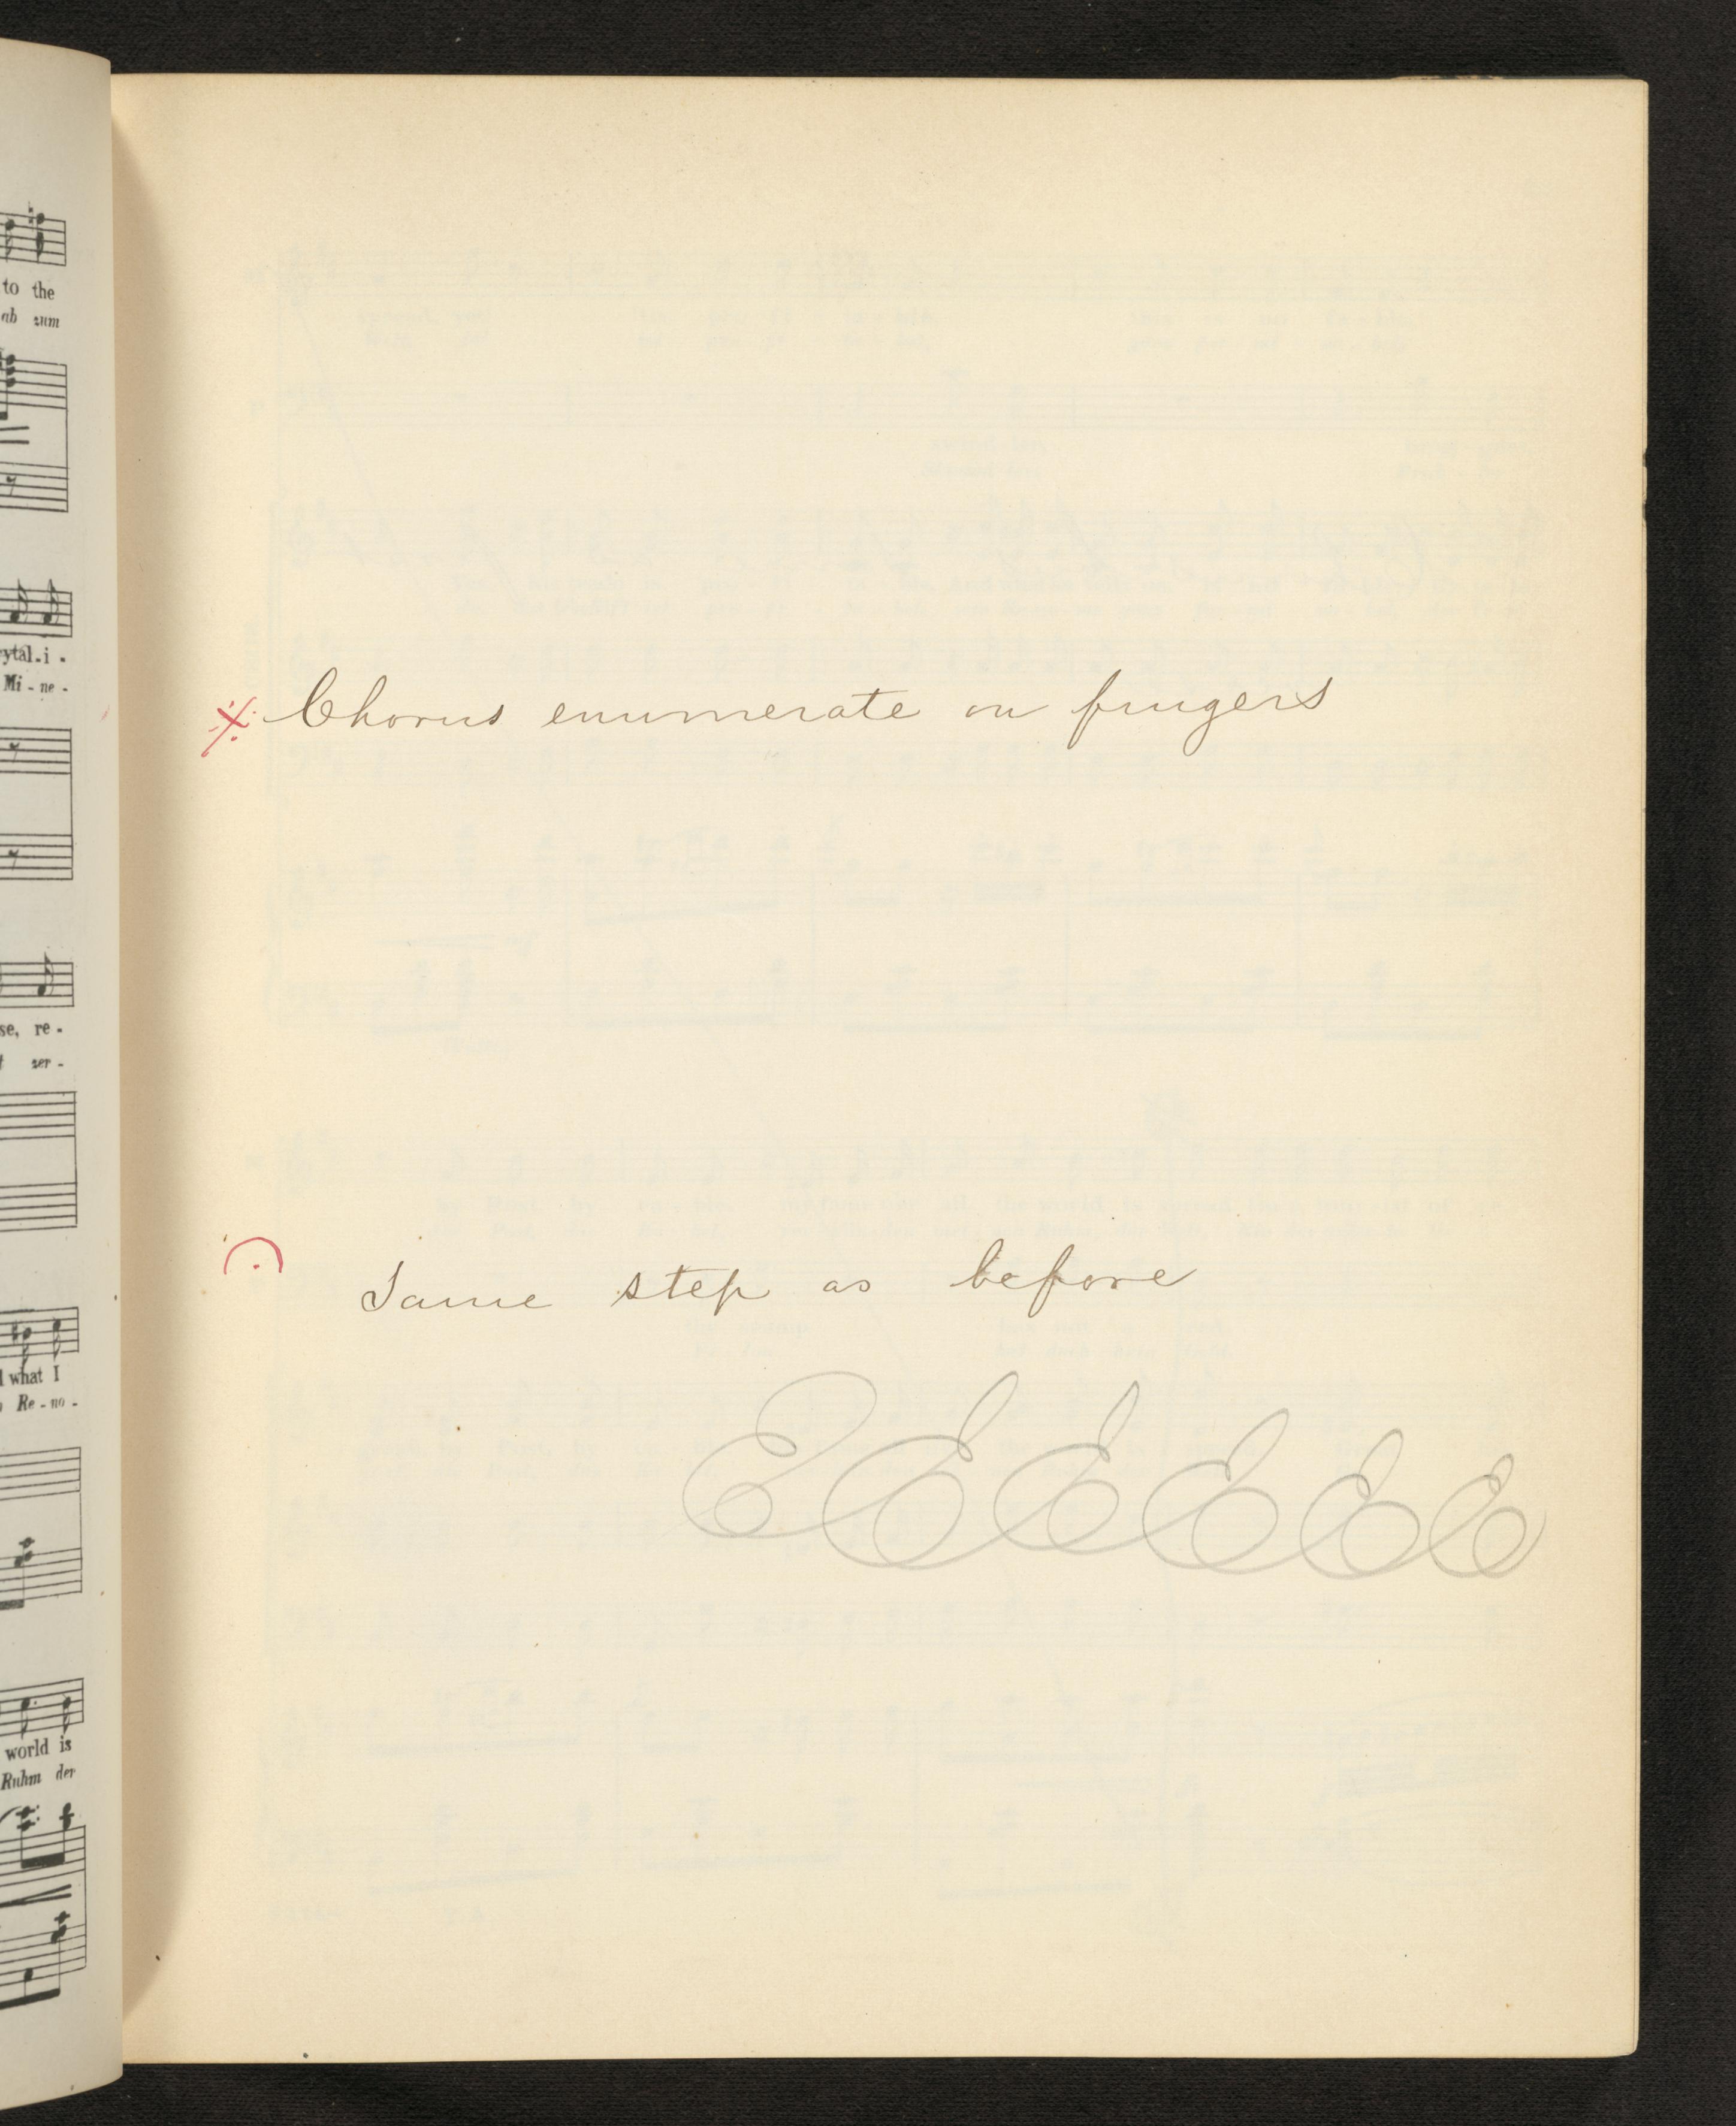 to the
ab zum
Mi - ne -
se, re -
zer -
what I
Re - no -
world is
Ruhm der
※ Chorus enumerate on fingers
Same step as before
E E E E E E